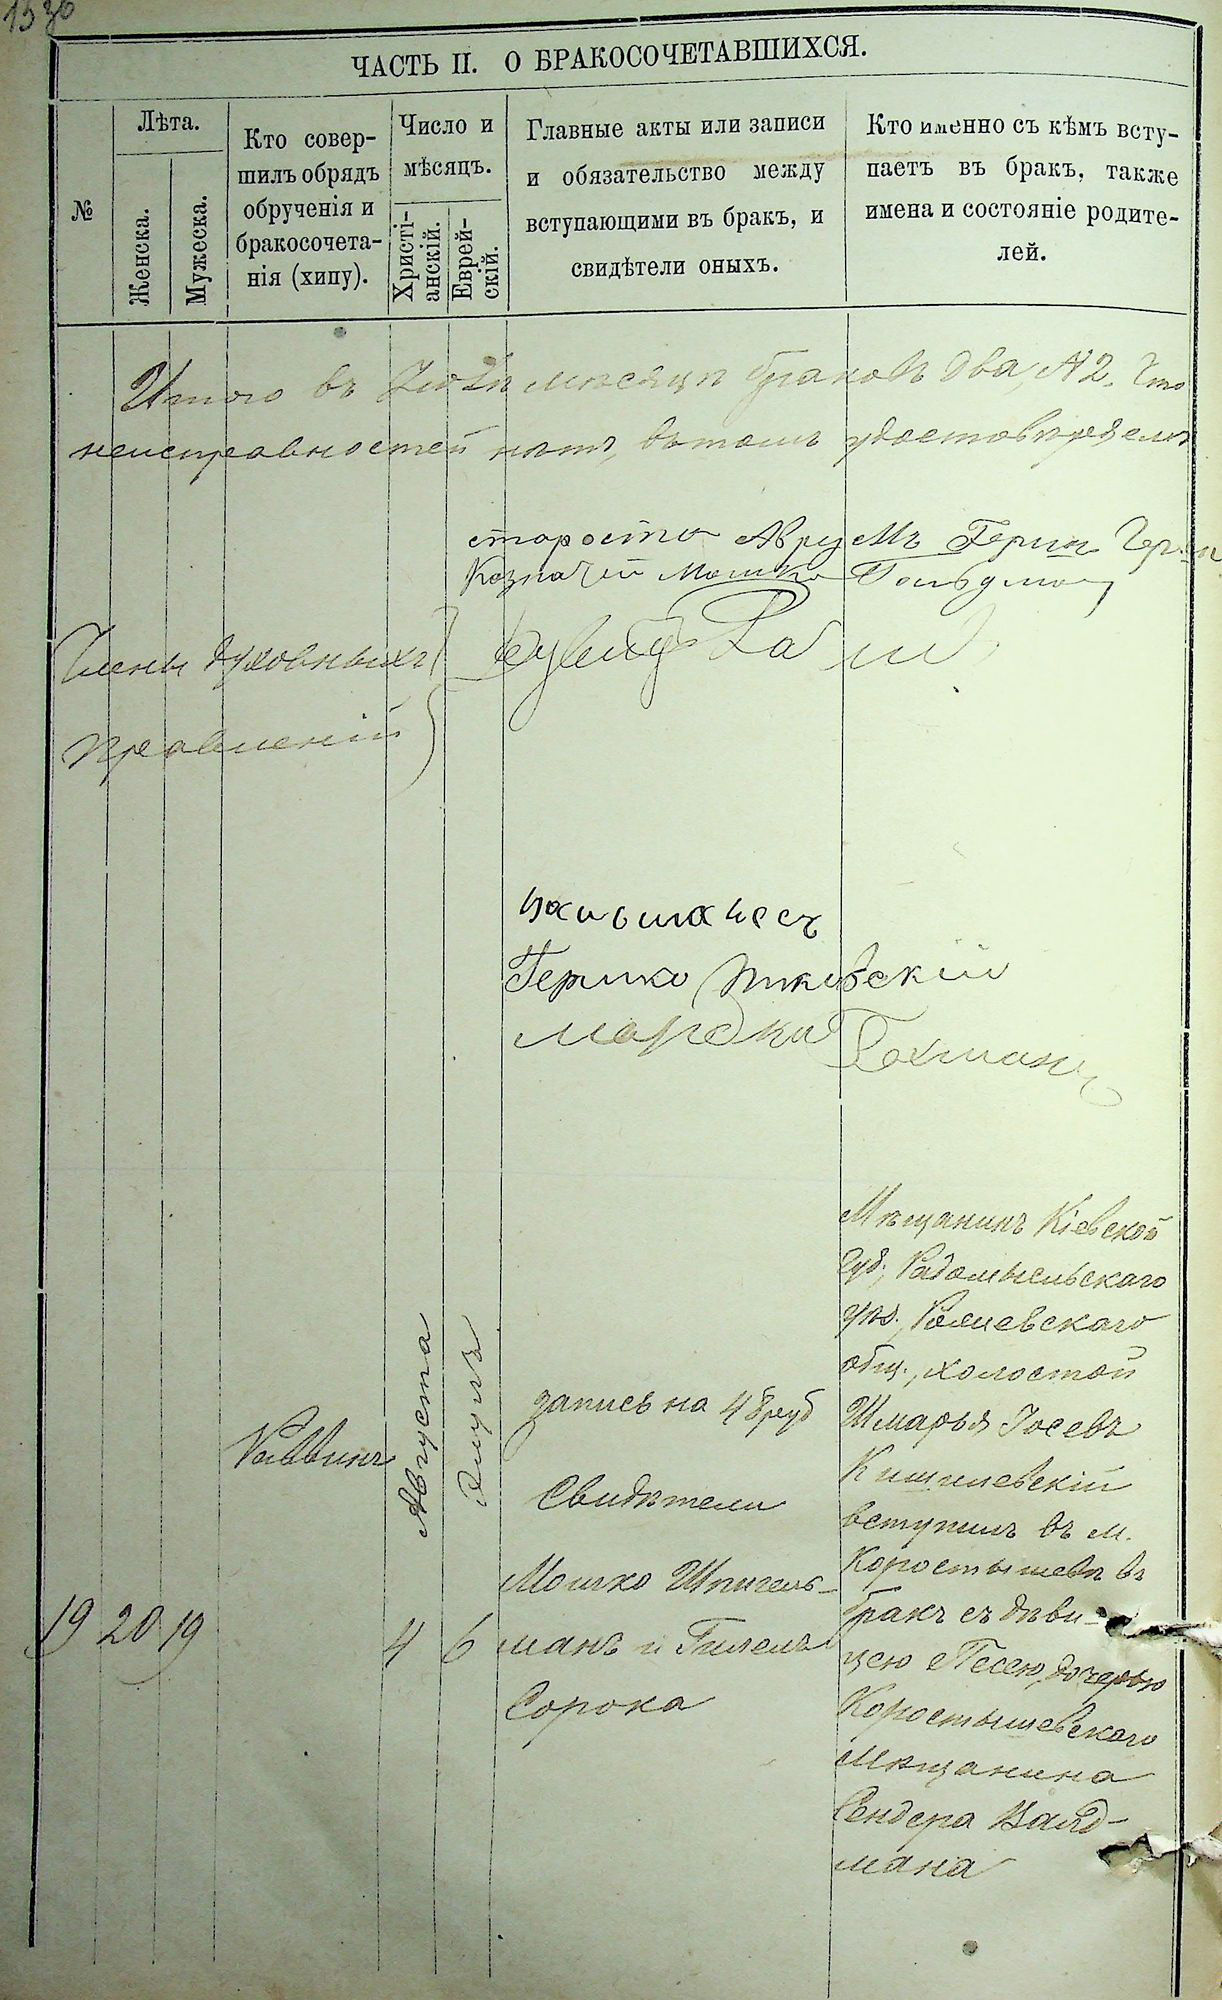 1536
ЧАСТЬ II. О БРАКОСОЧЕТАВШИХСЯ.
№
Лѣта.
Женска.
Мужеска.
Кто совер-
шилъ обрядъ
обрученія и
бракосочета-
нія (хипу).
Число и
мѣсяцъ.
Христі-
анскій.
Еврей-
скій.
Главные акты или записи
и обязательство между
вступающими въ бракъ, и
свидѣтели оныхъ.
Кто именно съ кѣмъ всту-
паетъ въ бракъ, также
имена и состояніе родите-
лей.
Итого въ мѣсяцѣ браковъ два, №2. Что
неисправностей нѣтъ, въ томъ удостовѣряемъ
староста Аврумъ Герш
Казначей Мошко Гольдман
Члены духовныхъ
правленій
Гершко
Мордко Гохманъ
19
20
19
Раввинъ
Августа
4
6
запись на 48 руб
Свидѣтели
Мошко Шпигель-
манъ и Гилель
Сорока
Мѣщанинъ Кіевской
губ., Радомысльскаго
уѣз., общ., холостой
Шмарья Іосевъ
Кишилевскій
вступилъ въ м.
Коростышевѣ въ
бракъ съ дѣви-
цею Песею, дочерью
Коростышевскаго
мѣщанина
Сендера Вайд-
мана